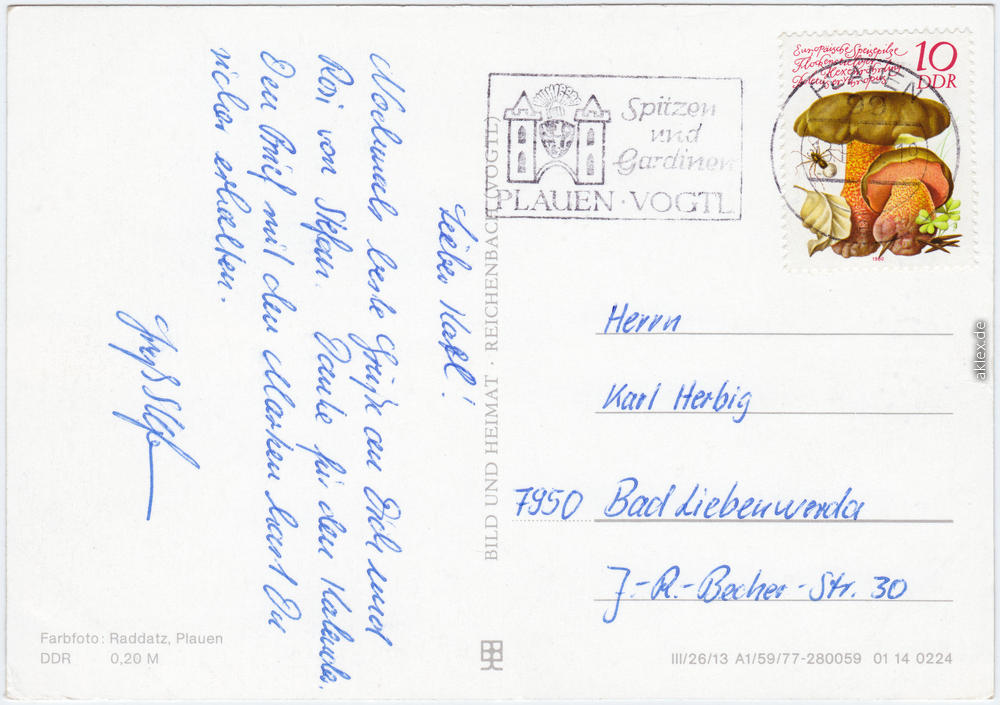 Lieber Karl!
Nochmals beste Grüße an Dich und
Rosi von Stefan. Danke für den Kalender.
Den Brief mit den Marken hast Du
sicher erhalten.
Gruß
Spitzen
und
Gardinen
PLAUEN · VOGTL
Europäische Speisepilze
10
DDR
PLAUEN
99
1980
BILD UND HEIMAT · REICHENBACH (VOGTL)
Herrn
Karl Herbig
7950 Bad Liebenwerda
J.-R.-Becher-Str. 30
Farbfoto: Raddatz, Plauen
DDR 0,20 M
III/26/13 A1/59/77-280059 01 14 0224
aklex.de